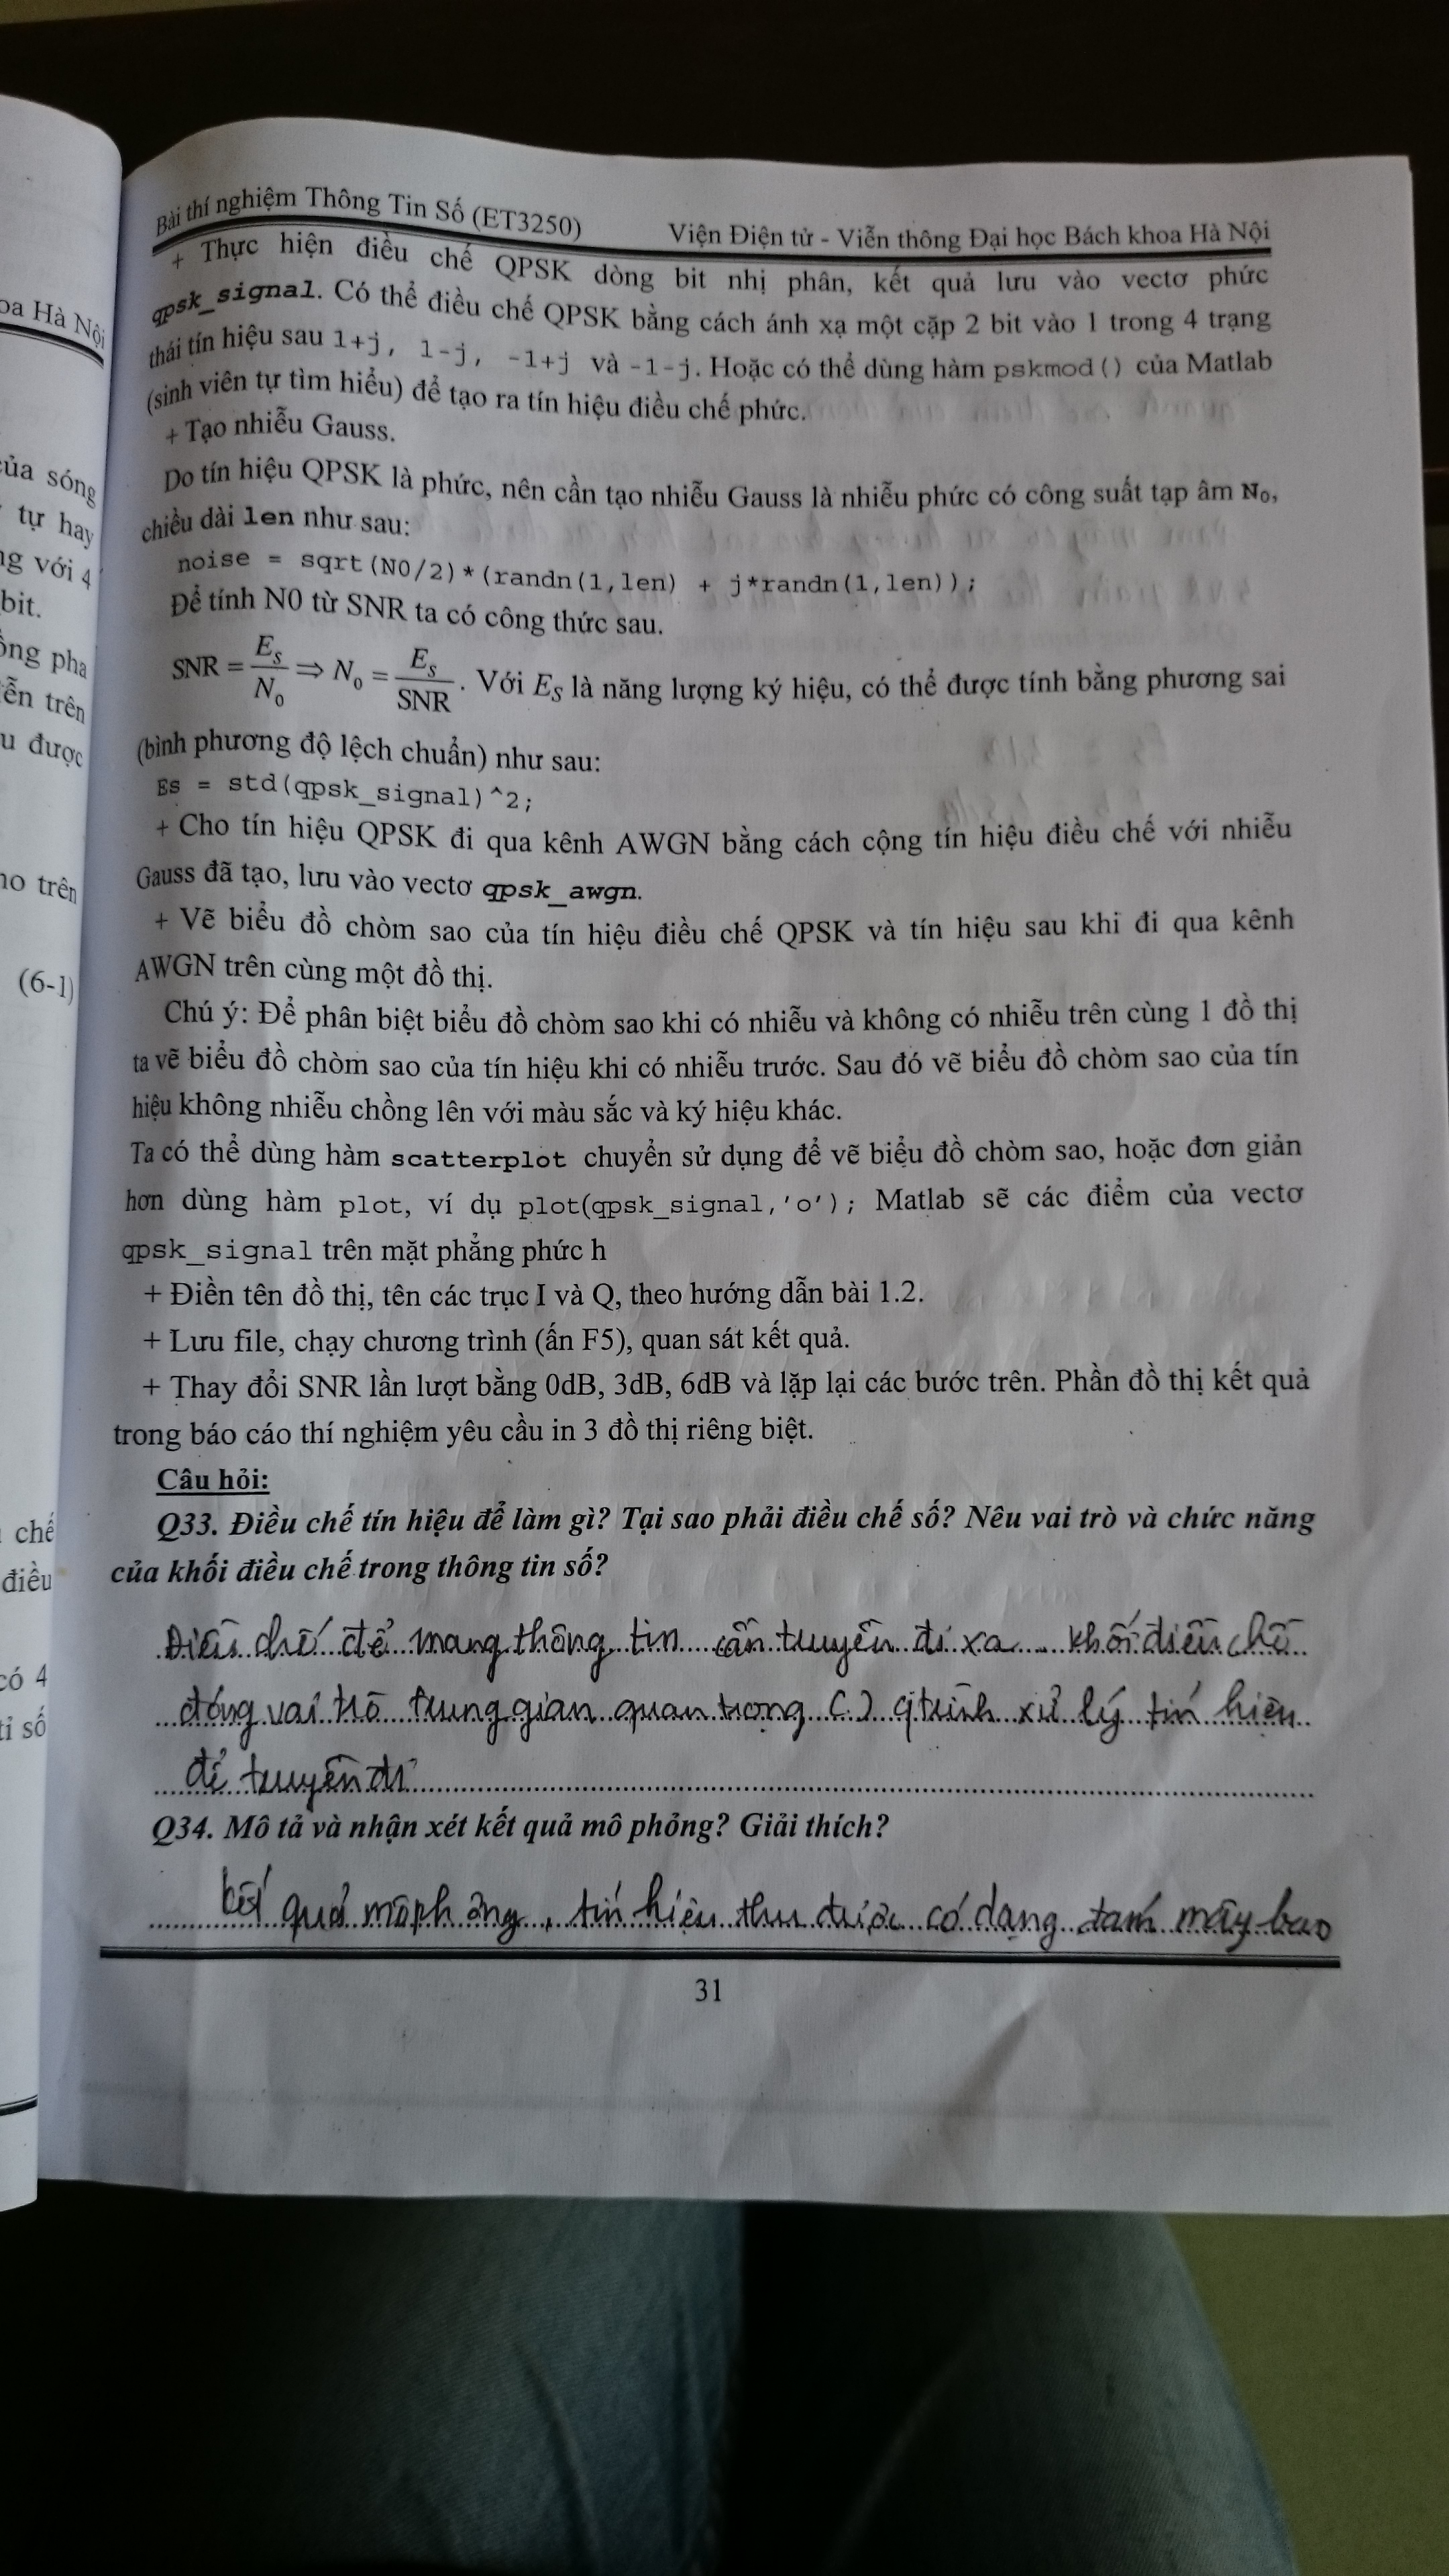 Bài thí nghiệm Thông Tin Số (ET3250) Viện Điện tử - Viễn thông Đại học Bách khoa Hà Nội
+ Thực hiện điều chế QPSK dòng bit nhị phân, kết quả lưu vào vectơ phức
qpsk_signal. Có thể điều chế QPSK bằng cách ánh xạ một cặp 2 bit vào 1 trong 4 trạng
thái tín hiệu sau 1+j, 1-j, -1+j và -1-j. Hoặc có thể dùng hàm pskmod() của Matlab
(sinh viên tự tìm hiểu) để tạo ra tín hiệu điều chế phức.
+ Tạo nhiễu Gauss.
Do tín hiệu QPSK là phức, nên cần tạo nhiễu Gauss là nhiễu phức có công suất tạp âm N₀,
chiều dài len như sau:
noise = sqrt(N0/2)*(randn(1,len) + j*randn(1,len));
Để tính N0 từ SNR ta có công thức sau.
SNR = E_S/N₀ ⇒ N₀ = E_S/SNR. Với E_S là năng lượng ký hiệu, có thể được tính bằng phương sai
(bình phương độ lệch chuẩn) như sau:
Es = std(qpsk_signal)^2;
+ Cho tín hiệu QPSK đi qua kênh AWGN bằng cách cộng tín hiệu điều chế với nhiễu
Gauss đã tạo, lưu vào vectơ qpsk_awgn.
+ Vẽ biểu đồ chòm sao của tín hiệu điều chế QPSK và tín hiệu sau khi đi qua kênh
AWGN trên cùng một đồ thị.
Chú ý: Để phân biệt biểu đồ chòm sao khi có nhiễu và không có nhiễu trên cùng 1 đồ thị
ta vẽ biểu đồ chòm sao của tín hiệu khi có nhiễu trước. Sau đó vẽ biểu đồ chòm sao của tín
hiệu không nhiễu chồng lên với màu sắc và ký hiệu khác.
Ta có thể dùng hàm scatterplot chuyển sử dụng để vẽ biểu đồ chòm sao, hoặc đơn giản
hơn dùng hàm plot, ví dụ plot(qpsk_signal,'o'); Matlab sẽ các điểm của vectơ
qpsk_signal trên mặt phẳng phức h
+ Điền tên đồ thị, tên các trục I và Q, theo hướng dẫn bài 1.2.
+ Lưu file, chạy chương trình (ấn F5), quan sát kết quả.
+ Thay đổi SNR lần lượt bằng 0dB, 3dB, 6dB và lặp lại các bước trên. Phần đồ thị kết quả
trong báo cáo thí nghiệm yêu cầu in 3 đồ thị riêng biệt.
Câu hỏi:
Q33. Điều chế tín hiệu để làm gì? Tại sao phải điều chế số? Nêu vai trò và chức năng
của khối điều chế trong thông tin số?
Điều chế để mang thông tin cần truyền đi xa khối điều chế
đóng vai trò trung gian quan trọng q trình xử lý tín hiệu
để truyền đi
Q34. Mô tả và nhận xét kết quả mô phỏng? Giải thích?
kết quả mô phỏng, tín hiệu thu được có dạng đám mây bao
31
oa Hà Nội
của sóng
tự hay
ng với 4
bit.
ồng pha
ễn trên
u được
ho trên
(6-1)
chế
điều
có 4
tỉ số